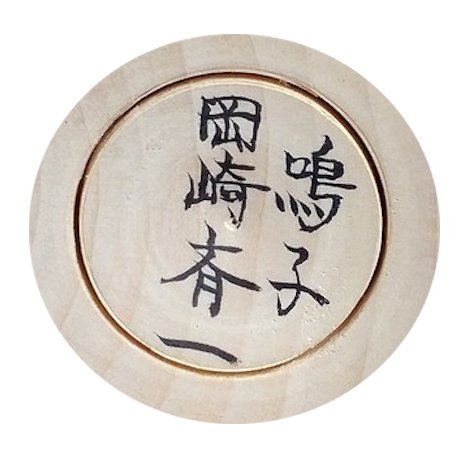 鳴子
岡崎斉一